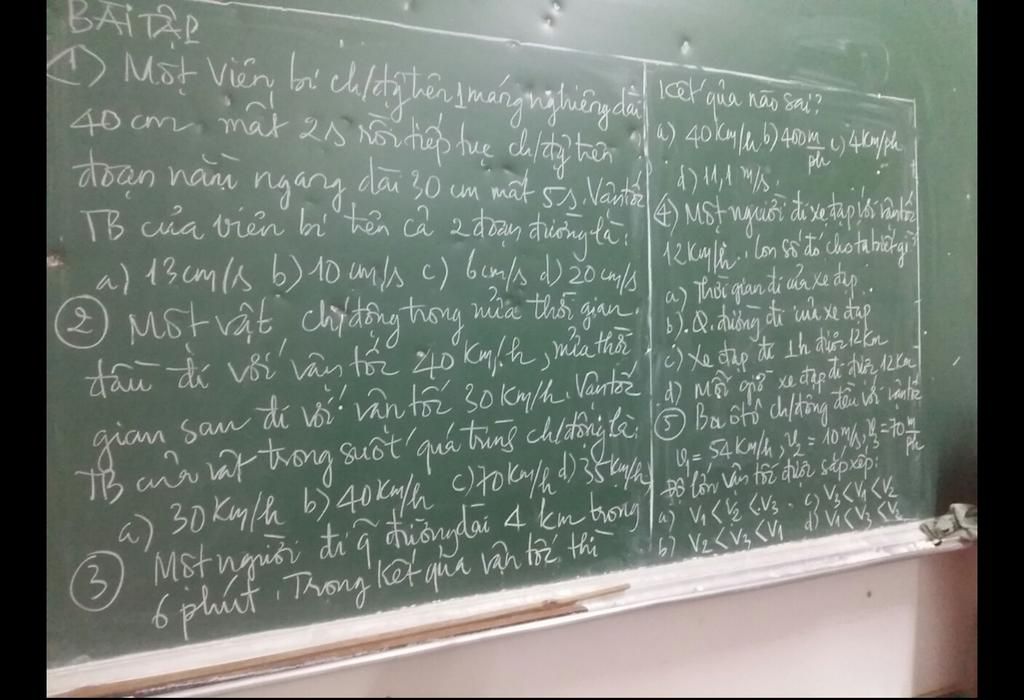 BÀI TẬP
① Một viên bi ch/động trên 1 máng nghiêng dài
40 cm mất 2s rồi tiếp tục ch/động trên
đoạn nằm ngang dài 30 cm mất 5s. Vận tốc
TB của viên bi trên cả 2 đoạn đường là:
a) 13 cm/s b) 10 cm/s c) 6 cm/s d) 20 cm/s
② Một vật ch/động trong nửa thời gian
đầu đi với vận tốc 40 km/h, nửa thời
gian sau đi với vận tốc 30 km/h. Vận tốc
TB của vật trong suốt quá trình ch/động là:
a) 30 km/h b) 40 km/h c) 70 km/h d) 35 km/h
③ Một người đi q đường dài 4 km trong
6 phút. Trong kết quả vận tốc thì
kết quả nào sai?
a) 40 km/h b) 400 m/ph c) 4 km/ph
d) 11,1 m/s
④ Một người đi xe đạp với vận tốc
12 km/h. Con số đó cho ta biết gì?
a) Thời gian đi của xe đạp.
b) Q. đường đi của xe đạp
c) Xe đạp đi 1h được 12 km
d) Mỗi giờ xe đạp đi được 12 km
⑤ Ba ô tô ch/động đều với vận tốc
v1 = 54 km/h, v2 = 10 m/s, v3 = 70 m/ph
Độ lớn vận tốc được sắp xếp:
a) V1 < V2 < V3. c) V3 < V1 < V2
b) V2 < V3 < V1 d) V1 < V3 < V2